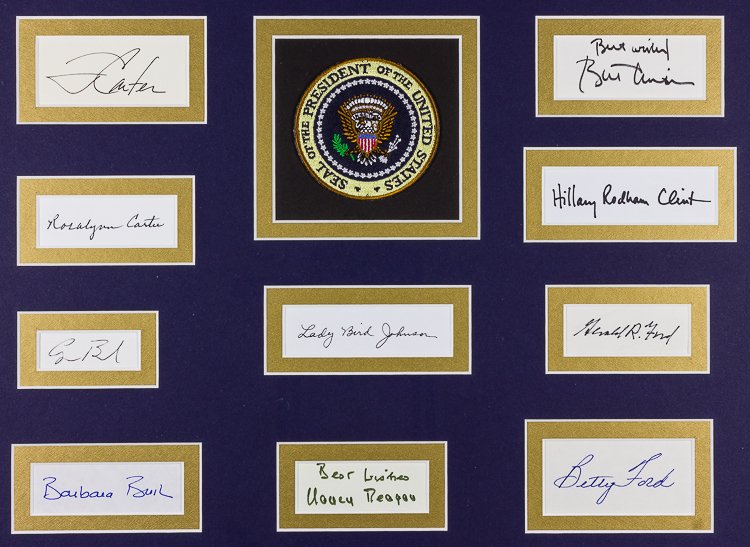 J Carter
SEAL OF THE PRESIDENT OF THE UNITED STATES
Best wishes
Bill Clinton
Rosalynn Carter
Hillary Rodham Clinton
G Bush
Lady Bird Johnson
Gerald R. Ford
Barbara Bush
Best Wishes
Nancy Reagan
Betty Ford